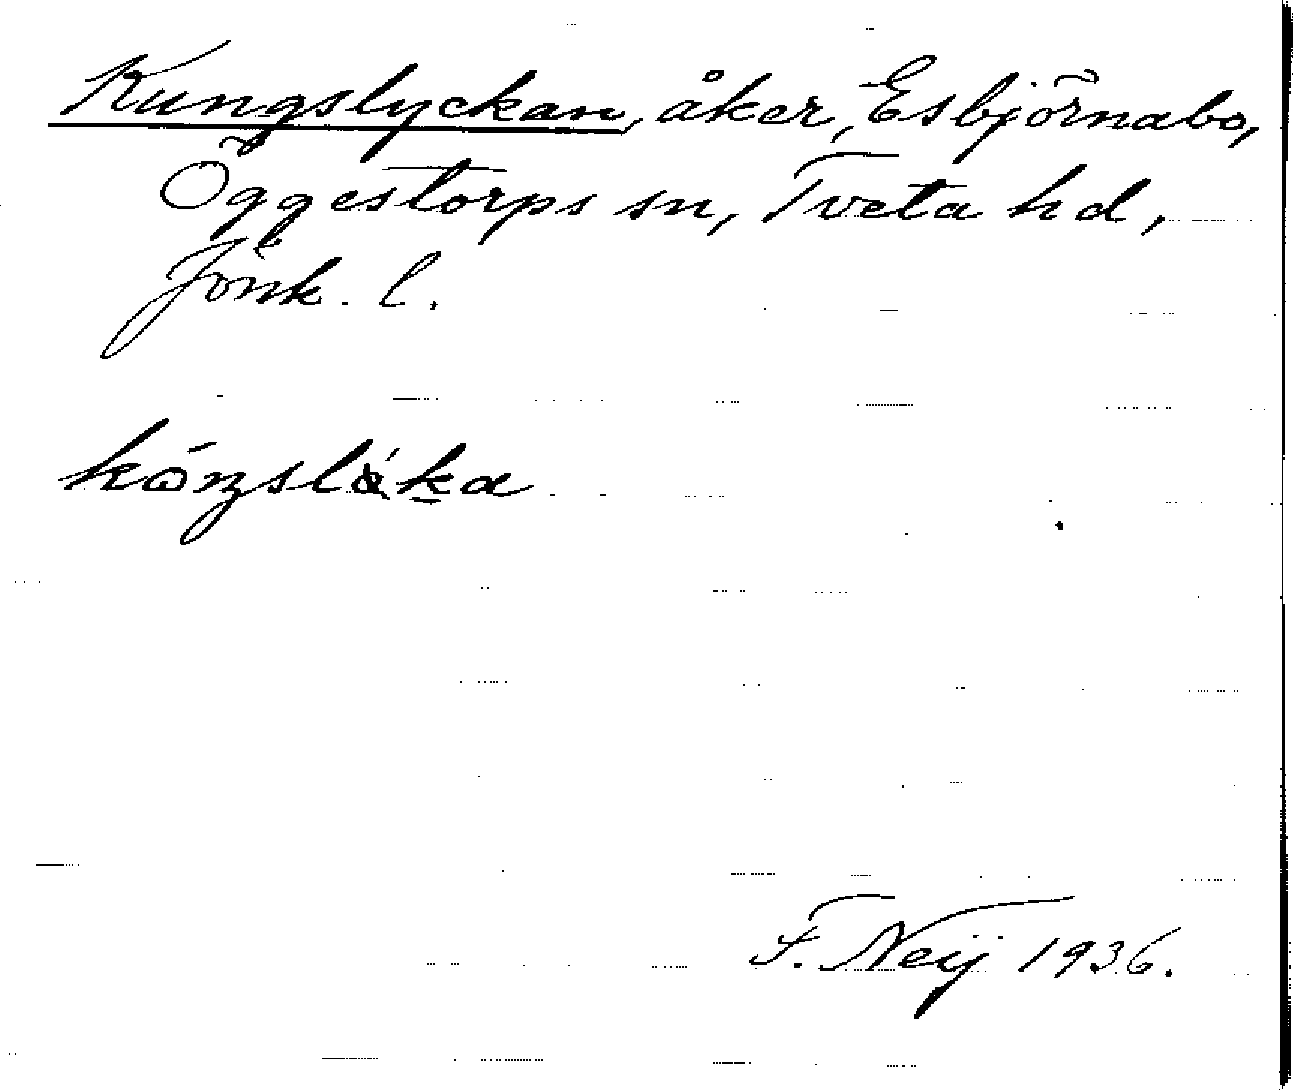 Kungslyckan, åker, Esbjörnabo,
Öggestorps sn, Tveta hd,
Jönk. l.
F. Neij 1936.